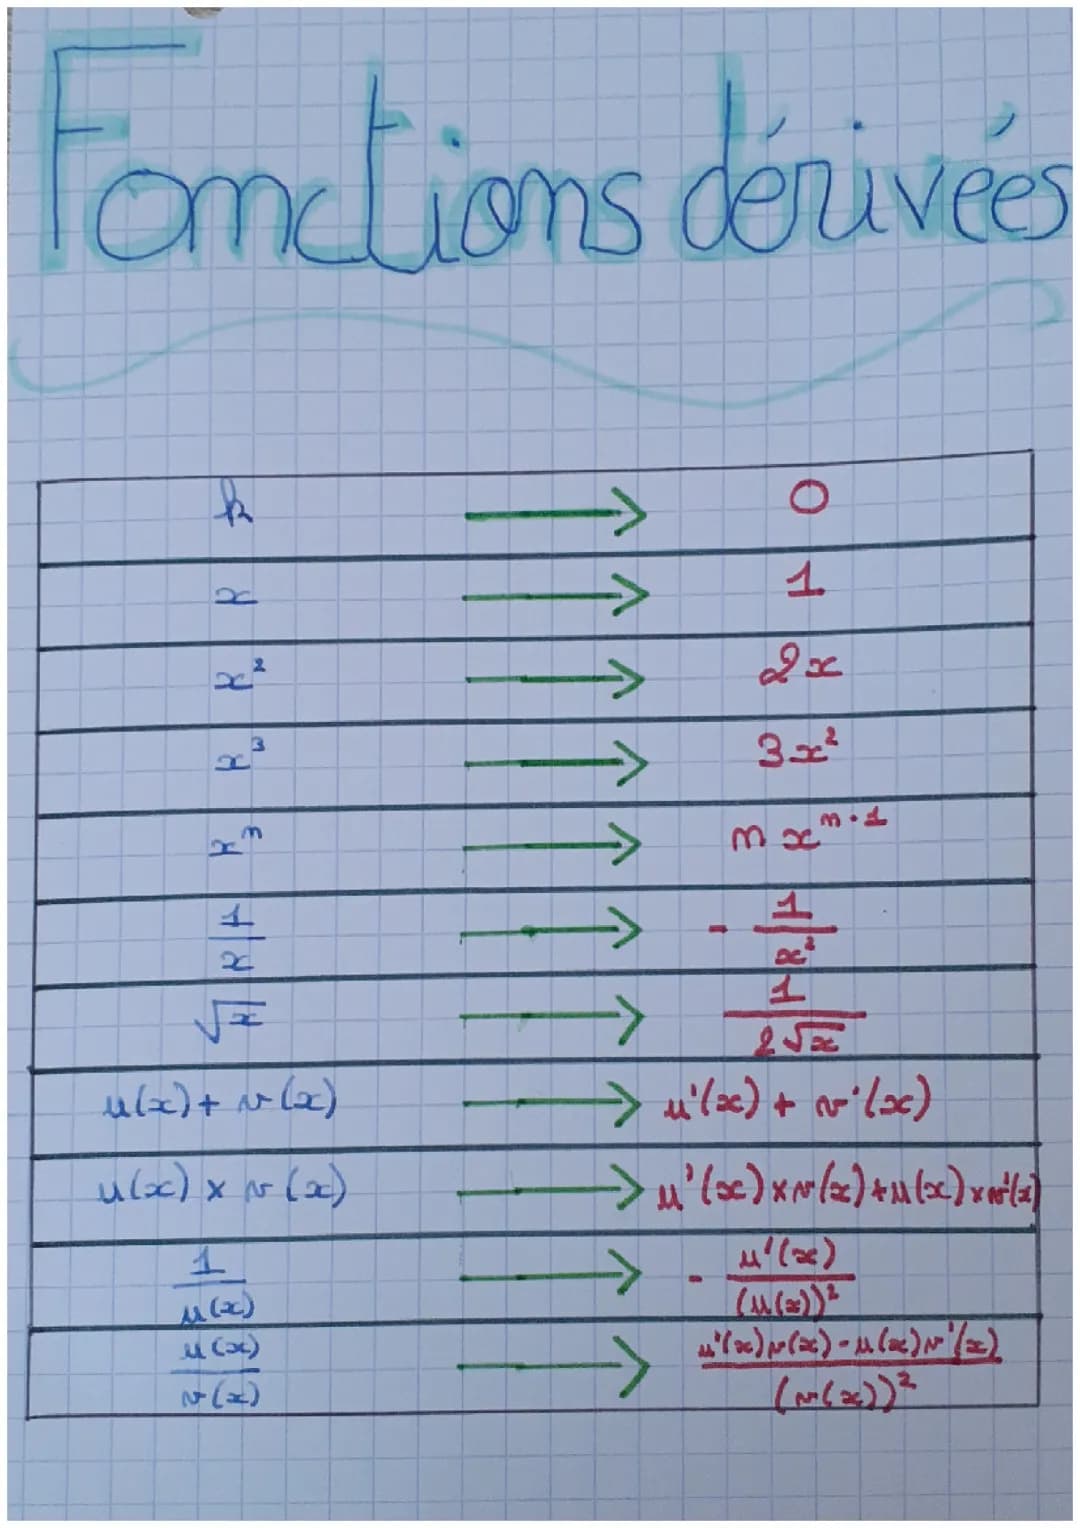 Fonctions dérivées
k → 0
x → 1
x² → 2x
x³ → 3x²
xⁿ → n xⁿ⁻¹
1/x → - 1/x²
√x → 1/(2√x)
u(x) + v(x) → u'(x) + v'(x)
u(x) × v(x) → u'(x) × v(x) + u(x) × v'(x)
1/u(x) → - u'(x)/(u(x))²
u(x)/v(x) → (u'(x)v(x) - u(x)v'(x))/(v(x))²